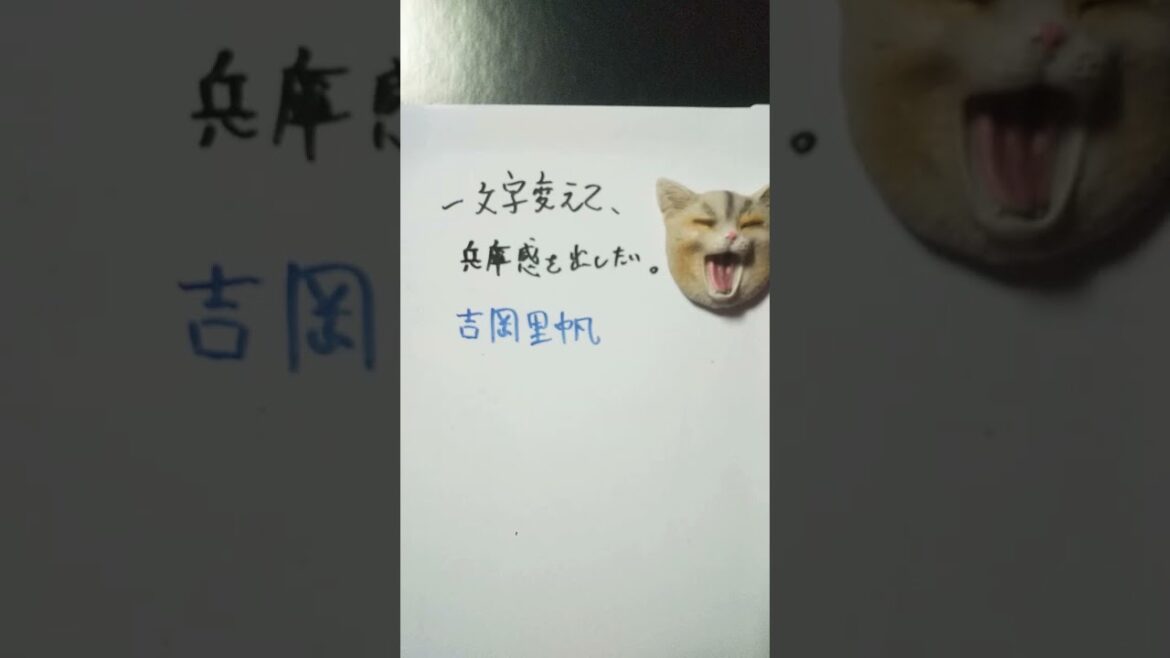 一文字変えて、
兵庫感を出したい。
吉岡里帆